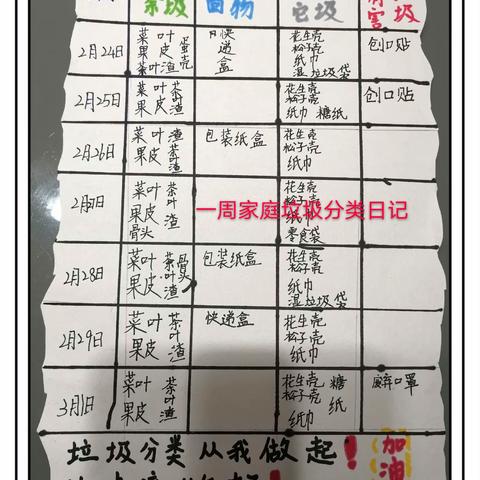 圾 物 它圾 害 圾
2月24日 菜叶 果皮 蛋壳 茶叶渣 快递盒 花生壳 松子壳 纸巾 湿垃圾袋 创口贴
2月25日 菜叶 果皮 茶叶渣 花生壳 松子壳 纸巾 糖纸 创口贴
2月26日 菜叶 果皮 茶叶渣 包装纸盒 花生壳 松子壳 纸巾
菜叶 果皮 骨头 茶叶渣 花生壳 松子壳 纸巾 零食袋
一周家庭垃圾分类日记
2月28日 菜叶 果皮 茶叶渣 骨头 包装纸盒 花生壳 松子壳 纸巾 湿垃圾袋
2月29日 菜叶 果皮 茶叶渣 快递盒 花生壳 松子壳 纸巾
3月1日 菜叶 果皮 茶叶渣 花生壳 松子壳 纸巾 糖纸 口罩
垃圾分类从我做起！加油